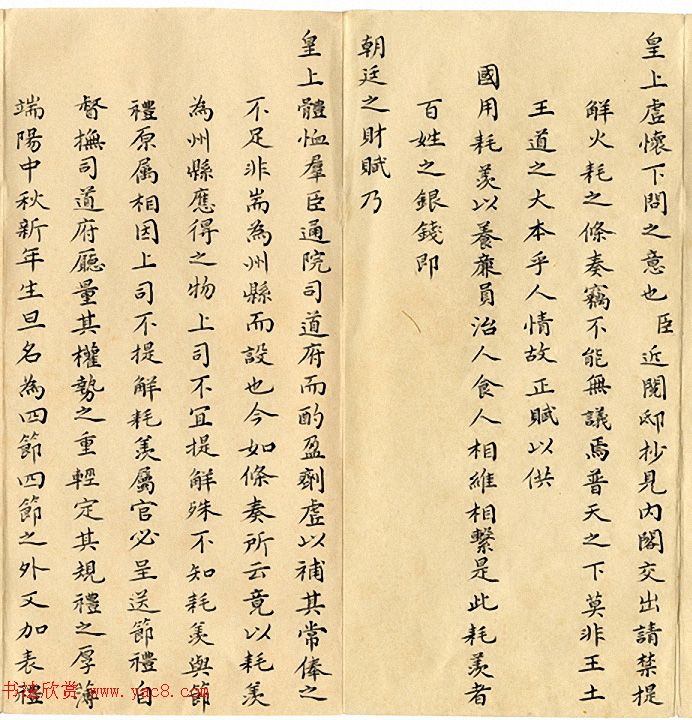 皇上虛懷下問之意也臣近閱邸抄見內閣交出請禁提
解火耗之條奏竊不能無議焉普天之下莫非王土
王道之大本乎人情故正賦以供
國用耗羨以養廉員治人食人相維相繫是此耗羨者
百姓之銀錢即
朝廷之財賦乃
皇上體恤羣臣通院司道府而酌盈劑虛以補其常俸之
不足非耑為州縣而設也今如條奏所云竟以耗羨
為州縣應得之物上司不宜提解殊不知耗羨與節
禮原屬相因上司不提解耗羨屬官必呈送節禮自
督撫司道府廳量其權勢之重輕定其規禮之厚薄
端陽中秋新年生旦名為四節四節之外又加表禮
书法欣赏 www.yac8.com